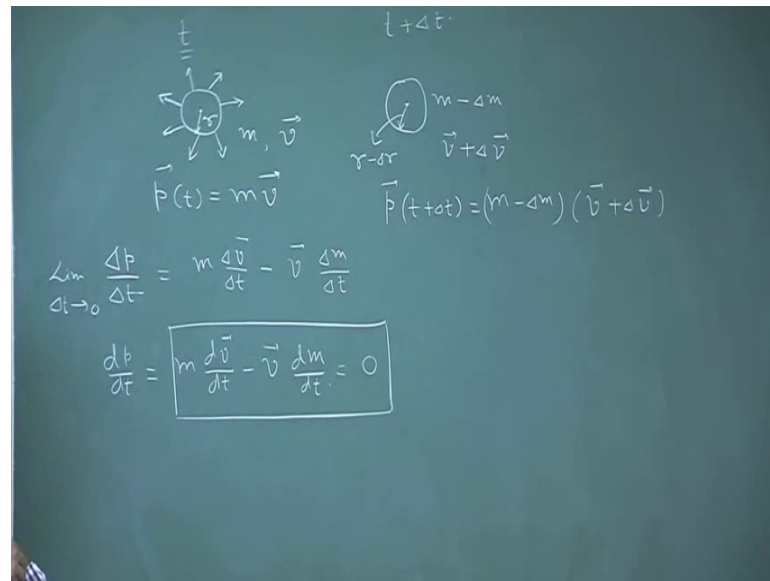 t
t + Δt
r
m, v⃗
m - Δm
r-Δr
v⃗ + Δv⃗
p⃗(t) = mv⃗
p⃗(t+Δt) = (m - Δm) (v⃗ + Δv⃗)
Lim Δt→0 Δp/Δt = m Δv⃗/Δt - v⃗ Δm/Δt
dp/dt = m dv⃗/dt - v⃗ dm/dt = 0